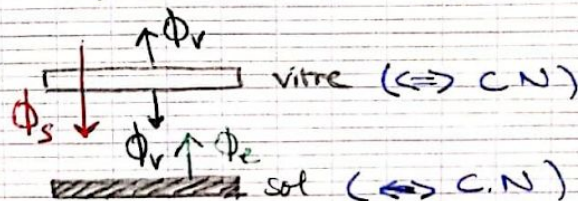 ϕv
vitre (<=> C.N)
ϕs
ϕv ϕe
sol (<=> C.N)